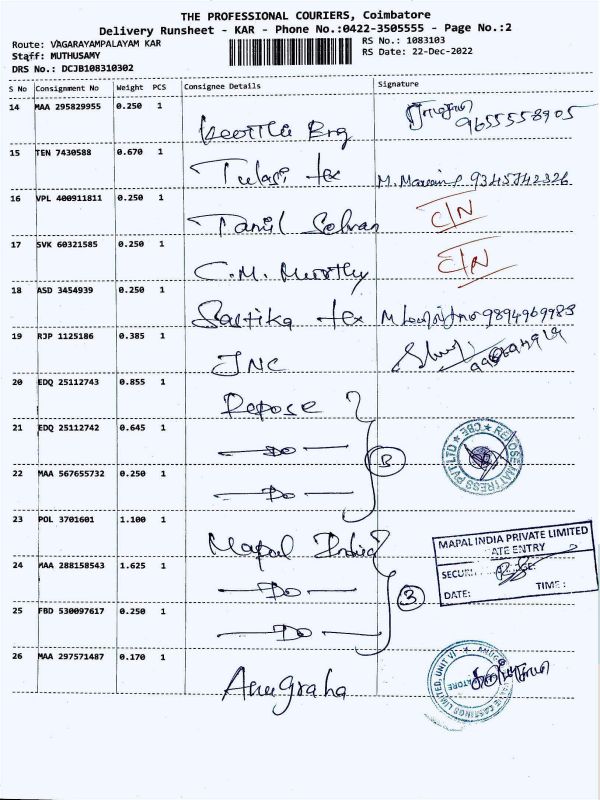 THE PROFESSIONAL COURIERS, Coimbatore
Delivery Runsheet - KAR - Phone No.:0422-3505555 - Page No.:2
Route: VAGARAYAMPALAYAM KAR
RS No.: 1083103
Staff: MUTHUSAMY
RS Date: 22-Dec-2022
DRS No.: DCJB108310302
S No Consignment No Weight PCS Consignee Details Signature
14 MAA 295829955 0.250 1
9655558905
15 TEN 7430588 0.670 1
Tulasi tex M. 9345742326
16 VPL 400911811 0.250 1
Tamil Selvan C/N
17 SVK 60321585 0.250 1
C.M. Moorthy C/N
18 ASD 3454939 0.250 1
Sastika tex M 9894969983
19 RJP 1125186 0.385 1
JNC
20 EDQ 25112743 0.855 1
Repose
21 EDQ 25112742 0.645 1
-Do-
3
REPOSE MATTRESS PVT LTD CBE
22 MAA 567655732 0.250 1
-Do-
23 POL 3701601 1.100 1
Mapal India
MAPAL INDIA PRIVATE LIMITED
ATE ENTRY
24 MAA 288158543 1.625 1
-Do-
3
DATE: TIME:
25 FBD 530097617 0.250 1
-Do-
26 MAA 297571487 0.170 1
Anugraha
CASTINGS LIMITED, UNIT VI